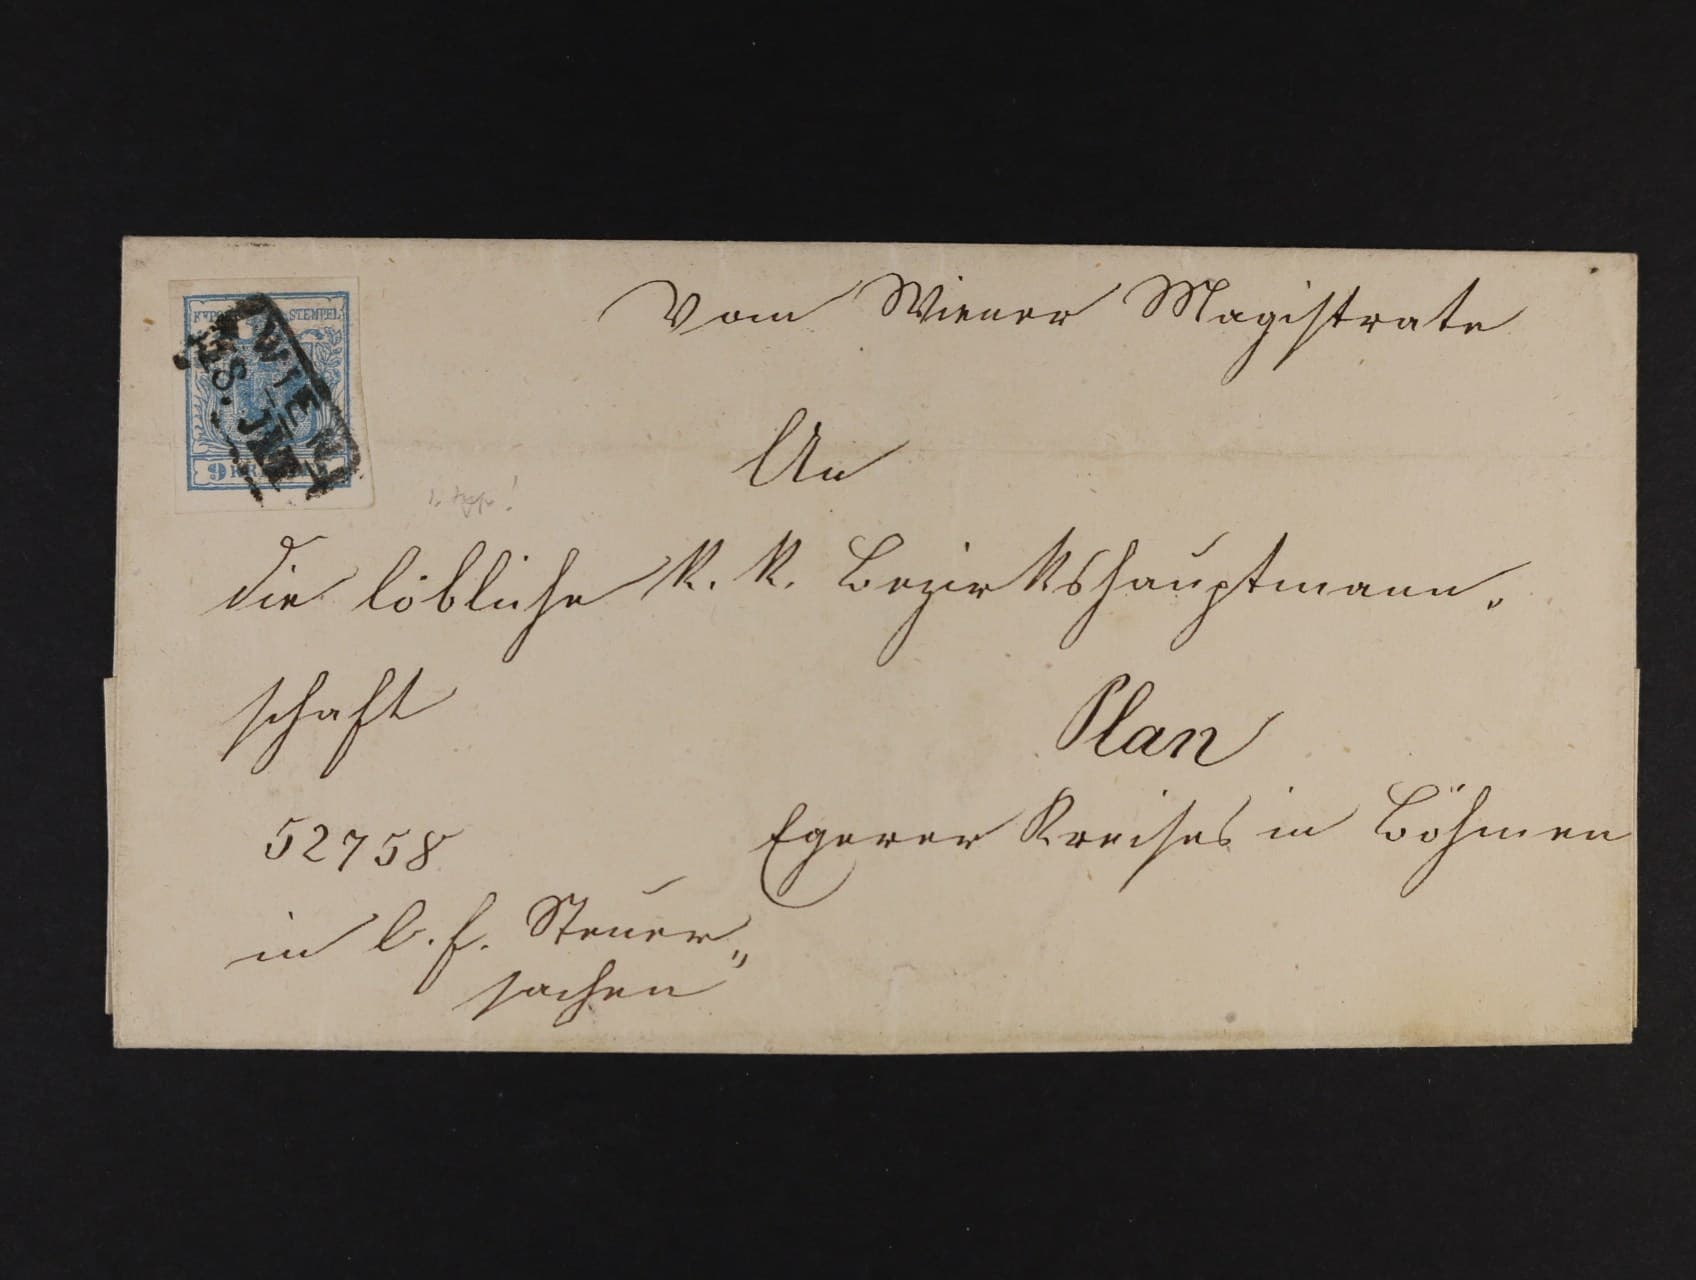 Vom Wiener Magistrate
KKPOST-STEMPEL
WIEN
9 KREUZER
An
die löbliche k. k. Bezirkshauptmann-
schaft
Plan
52758
Egerer Kreises in Böhmen
in l. f. Steuer„
sachen